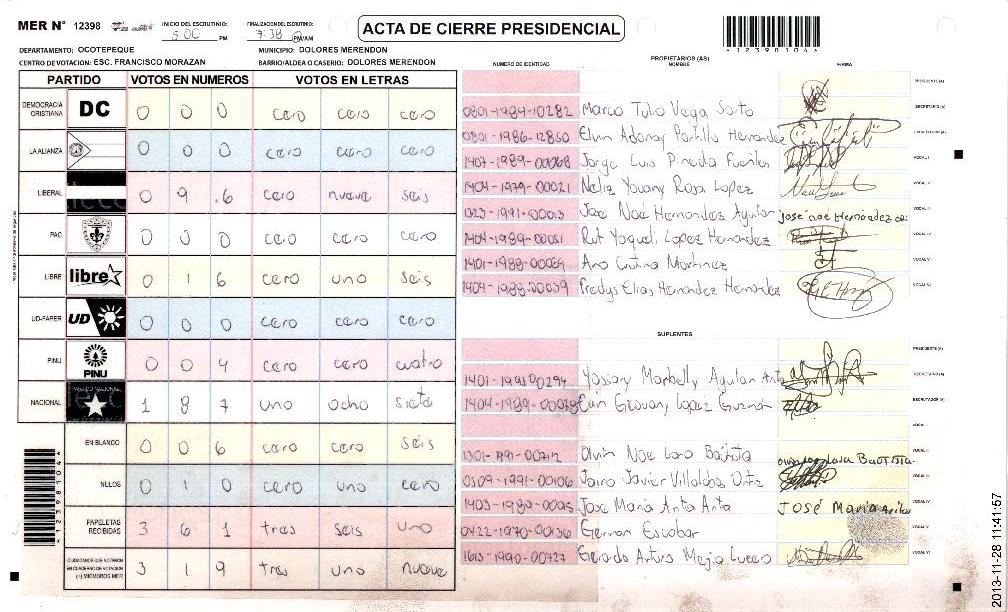 MER N° 12398
INICIO DEL ESCRUTINIO: 5:00 PM
FINALIZACION DEL ESCRUTINIO: 7:38 PM/AM
ACTA DE CIERRE PRESIDENCIAL
*12398104*
DEPARTAMENTO: OCOTEPEQUE
MUNICIPIO: DOLORES MERENDON
CENTRO DE VOTACION: ESC. FRANCISCO MORAZAN
BARRIO/ALDEA O CASERIO: DOLORES MERENDON
PARTIDO VOTOS EN NUMEROS VOTOS EN LETRAS
DEMOCRACIA CRISTIANA DC 0 0 0 cero cero cero
LA ALIANZA 0 0 0 cero cero cero
LIBERAL 0 9 6 cero nueve seis
PAC 0 0 0 cero cero cero
LIBRE libre 0 1 6 cero uno seis
UD-FAPER UD 0 0 0 cero cero cero
PINU PINU 0 0 4 cero cero cuatro
NACIONAL PARTIDO NACIONAL 1 8 7 uno ocho siete
EN BLANCO 0 0 6 cero cero seis
NULOS 0 1 0 cero uno cero
PAPELETAS RECIBIDAS 3 6 1 tres seis uno
CIUDADANOS QUE VOTARON EN CUADERNO DE VOTACION (+) MIEMBROS MER 3 1 9 tres uno nueve
PROPIETARIOS (AS)
NUMERO DE IDENTIDAD NOMBRE FIRMA
PRESIDENTE (A)
0801-1984-10282 Marco Tulio Vega Sorto SECRETARIO (A)
0801-1986-12850 Elvin Adonay Portillo Hernandez ESCRUTADOR (A)
1407-1989-00068 Jorge Luis Pineda Fuentes VOCAL I
1404-1979-00021 Neliz Yovany Rosa Lopez VOCAL II
1323-1991-00013 Jose Noé Hernandez VOCAL III
1404-1989-00051 Rut Yaqueli Lopez Hernandez VOCAL IV
Ana Cristina Martinez VOCAL V
1404-1988-00039 Fredys Elias Hernandez Hernandez VOCAL VI
SUPLENTES
PRESIDENTE (A)
Yossary Marbelly Aguilar SECRETARIO (A)
Geovany Lopez Guzman ESCRUTADOR (A)
VOCAL I
Olvin Noe Lara Bautista VOCAL II
0509-1991-00106 Jairo Javier Villalobos Ortiz VOCAL III
Jose Maria Anta Anta JOSÉ Maria VOCAL IV
0422-1970-00136 German Escobar VOCAL V
1613-1990-00727 Gerardo Arturo Mejia VOCAL VI
*12398104*
2013-11-28 11:41:57